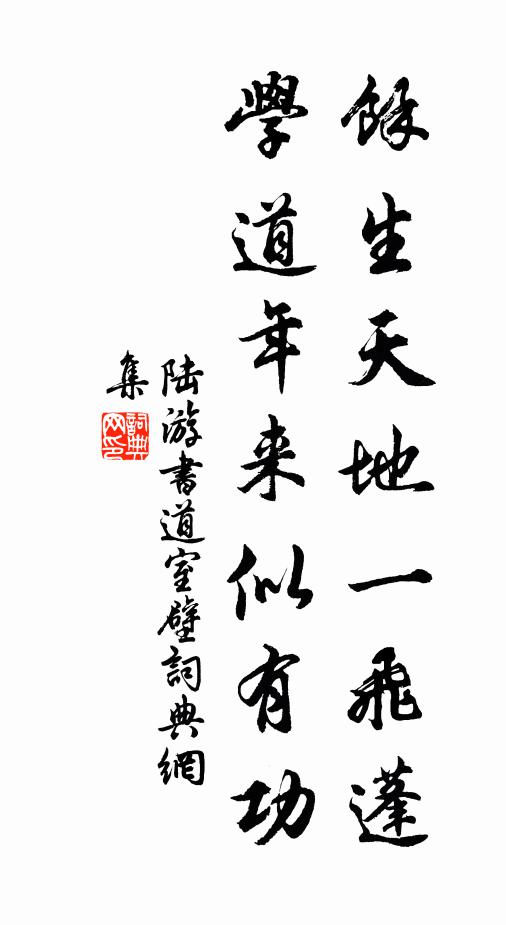 餘生天地一飛蓬
學道年来似有功
陸游書道室壁詞典網
集
詞典网印